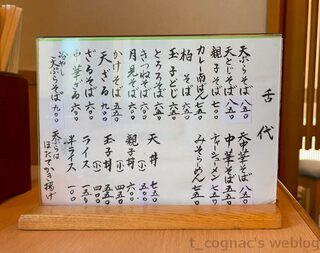 舌代
天ぷらそば 八五〇
天とじそば 八五〇
親子そば 七五〇
カレー南ばん 七五〇
柏そば 六五〇
玉子とじ 六五〇
とろろそば 六五〇
月見そば 六〇〇
きつねそば 六〇〇
かけそば 五五〇
天ざる 八五〇
ざるそば 六〇〇
中華ざる 六〇〇
冷やし天ぷらそば 九〇〇
天中華そば 八五〇
中華そば 五五〇
チャーシューメン 七五〇
みそらーめん 七五〇
天丼 七五〇
(小) 五〇〇
親子丼 六〇〇
(小) 四五〇
玉子丼 五五〇
(小) 四〇〇
ライス 一五〇
半ライス 一〇〇
天ぷらは
ほたてかき揚げ
t_cognac's weblog